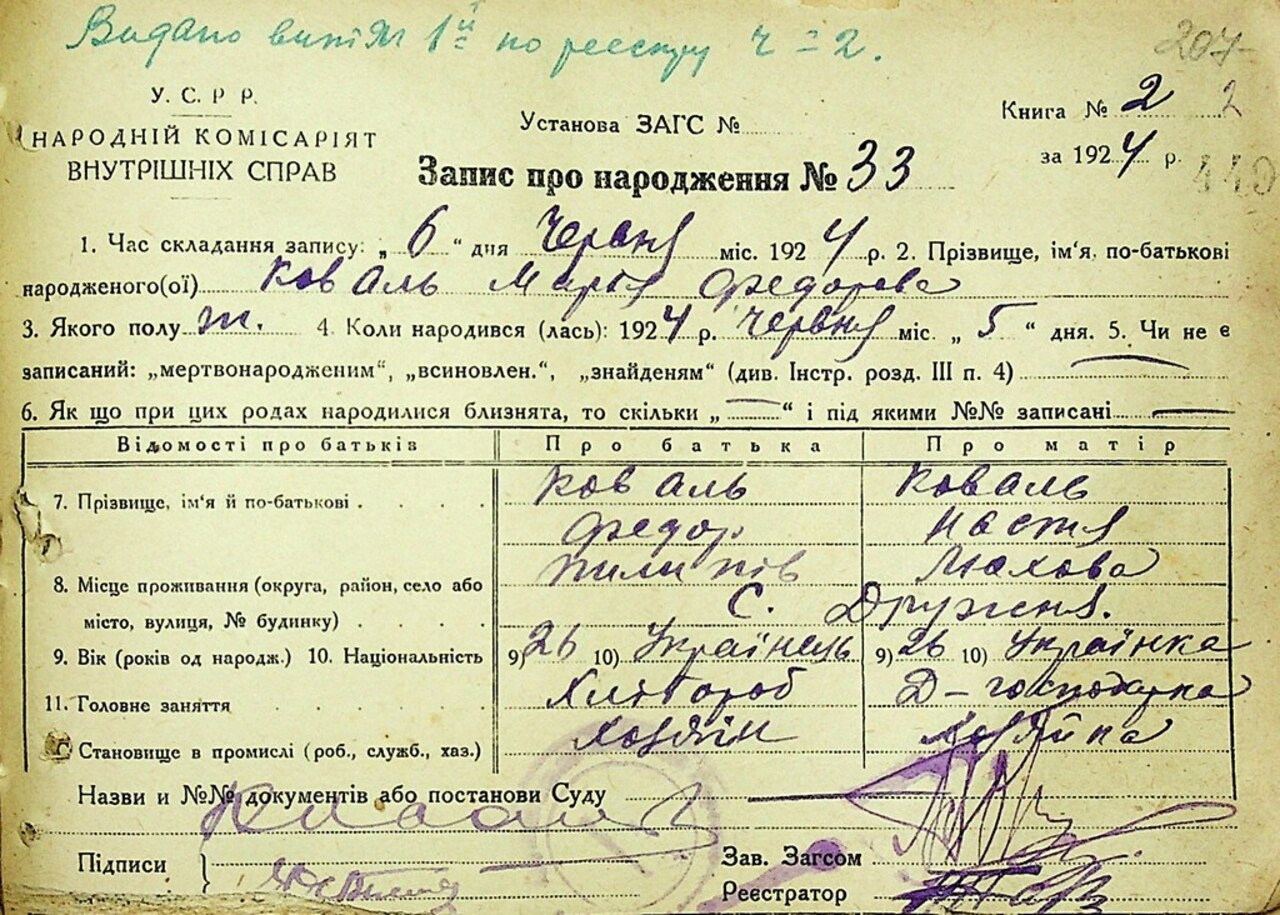 Видано витяг 1й по реєстру ч = 2.
207
У. С. Р Р.
НАРОДНІЙ КОМІСАРІЯТ
ВНУТРІШНІХ СПРАВ
Установа ЗАГС №
Книга № 2 2
за 1924 р.
449
Запис про народження № 33
1. Час складання запису: „ 6 “ дня Червня міс. 1924 р. 2. Прізвище, ім‘я, по-батькові
народженого(ої) Коваль Марія Федорова
3. Якого полу ж. 4. Коли народився (лась): 1924 р. Червня міс. „ 5 “ дня. 5. Чи не є
записаний: „мертвонародженим“, „всиновлен.“, „знайденям“ (див. Інстр. розд. III п. 4) —
6. Як що при цих родах народилися близнята, то скільки „ — “ і під якими №№ записані —
Відомості про батьків Про батька Про матір
7. Прізвище, ім‘я й по-батькові . . . . Коваль Коваль
Федор Настя
Пилипів
8. Місце проживання (округа, район, село або
місто, вулиця, № будинку) . . . . С. Дружня.
9. Вік (років од народж.) 10. Національність 9) 26 10) Українець 9) 26 10) Українка
11. Головне заняття . . . . . Хлібороб Д-господарка
Становище в промислі (роб., служб., хаз.) Хозяїн Хозяйка
Назви и №№ документів або постанови Суду
Підписи }
Зав. Загсом
Реєстратор